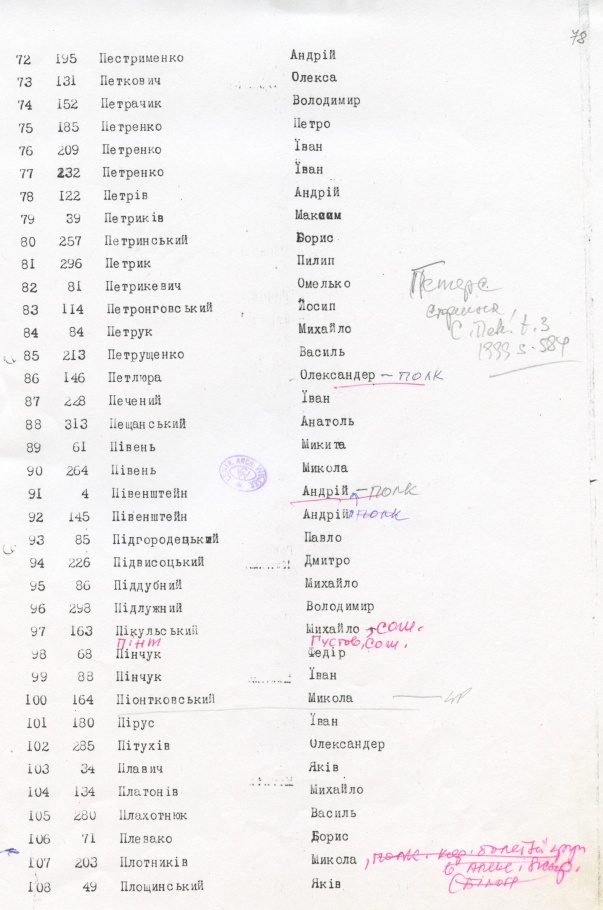 78
72 195 Пестрименко Андрій
73 131 Петкович Олекса
74 152 Петрачик Володимир
75 185 Петренко Петро
76 209 Петренко Їван
77 232 Петренко Їван
78 122 Петрів Андрій
79 39 Петриків Максим
80 257 Петринський Борис
81 296 Петрик Пилип
82 81 Петрикевич Омелько
83 114 Петронговський Йосип
84 84 Петрук Михайло
85 213 Петрущенко Василь
86 146 Петлюра Олександер – полк
87 228 Печений Їван
88 313 Пещанський Анатоль
89 61 Півень Микита
90 264 Півень Микола
91 4 Півенштейн Андрій – полк
92 145 Півенштейн Андрій полк
93 85 Підгородецький Павло
94 226 Підвисоцький Дмитро
95 86 Піддубний Михайло
96 298 Підлужний Володимир
97 163 Пікульський Михайло, сот.
Пінт Густов, сот.
98 68 Пінчук Федір
99 88 Пінчук Їван
100 164 Піонтковський Микола
101 180 Пірус Їван
102 285 Пітухів Олександер
103 34 Плавич Яків
104 134 Платонів Михайло
105 280 Плахотнюк Василь
106 71 Плевако Борис
107 203 Плотників Микола, полк.
108 49 Площинський Яків
Петерс
t. 3
1999 s. 584